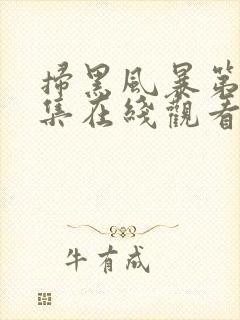 掃黑風暴第
集在綫觀看
牛有成